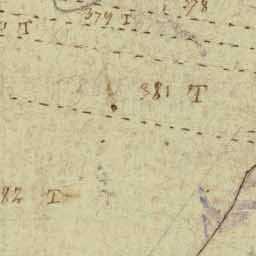 378
379 T
T
381 T
82 T